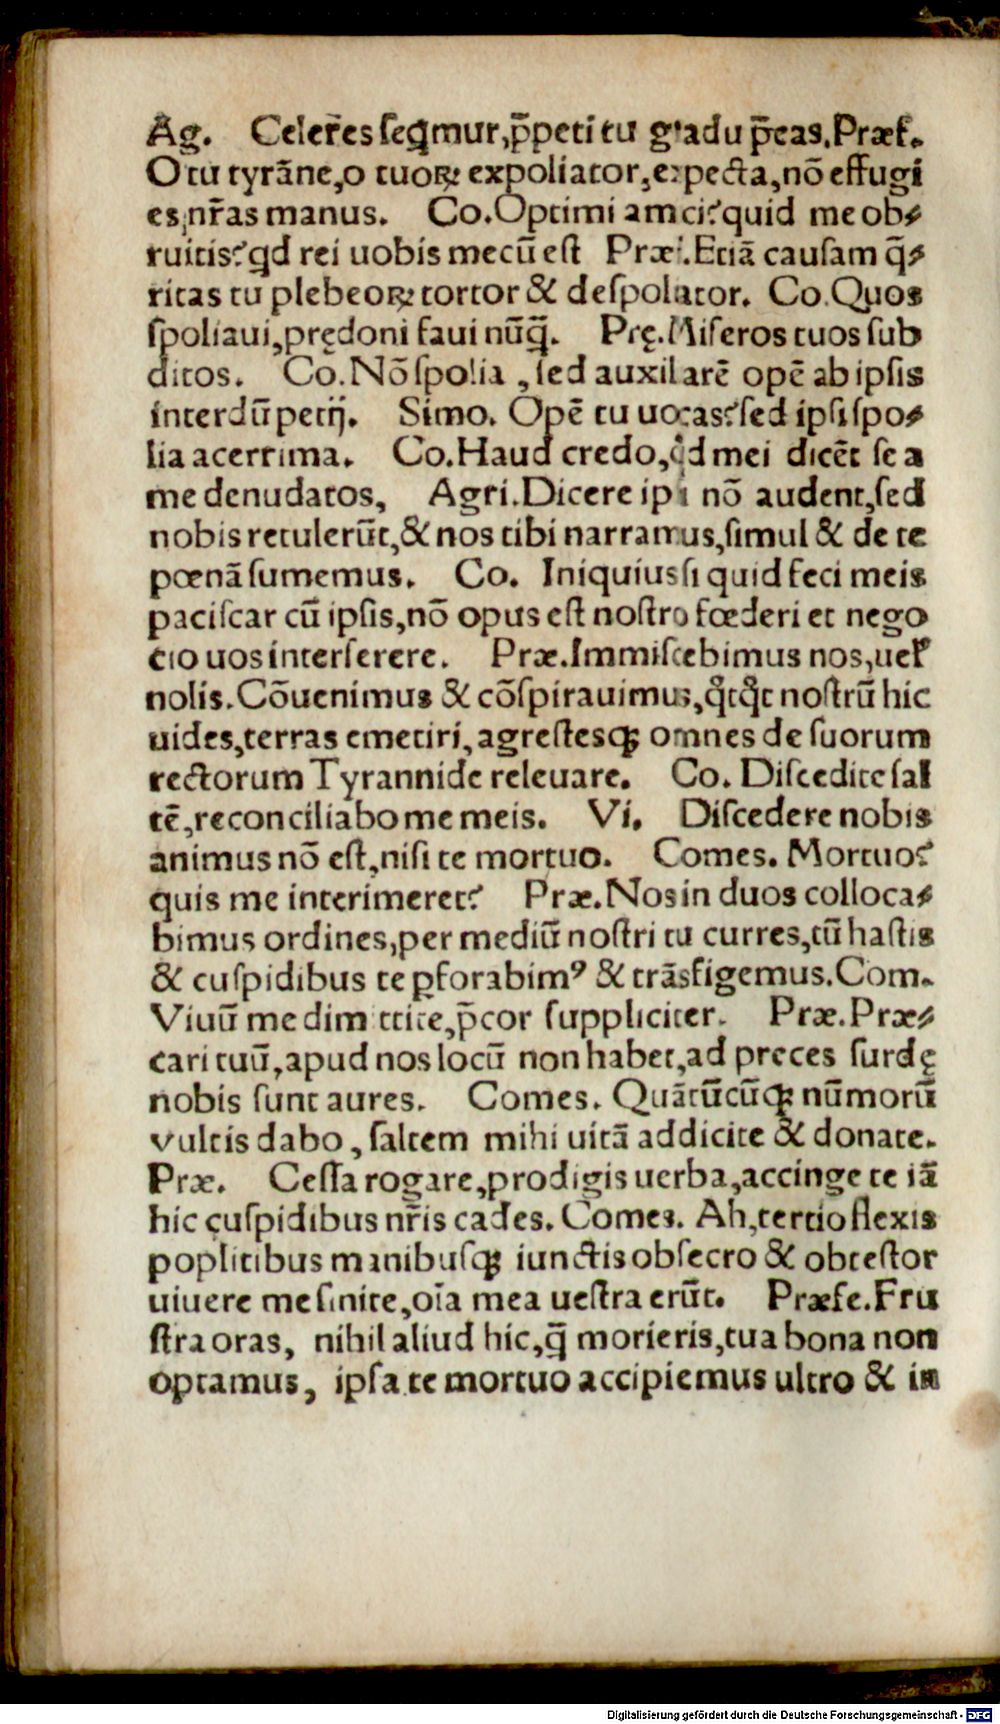 Ag. Celer̃es seq̃mur,p̃peti tu gradu p̃eas.Præf.
O tu tyrãne,o tuoꝝ expoliator,expecta,nõ effugi
es nr̃as manus. Co.Optimi amici?quid me ob⸗
ruitis?qd rei uobis mecũ est Præf.Etiã causam q̃⸗
ritas tu plebeoꝝ tortor & despoliator. Co.Quos
spoliaui,prędoni faui nũq̃. Prę.Miseros tuos sub
ditos. Co.Nõ spolia ,sed auxilarẽ opẽ ab ipsis
interdũ petij. Simo. Opẽ tu uocas?sed ipsi spo⸗
lia acerrima. Co.Haud credo,qd mei dicẽt se a
me denudatos, Agri.Dicere ipi nõ audent,sed
nobis retulerũt,& nos tibi narramus,simul & de te
pœnã sumemus. Co. Iniquius si quid feci meis
paciscar cũ ipsis,nõ opus est nostro fœderi et nego
cio uos interserere. Præ.Immiscebimus nos,uel
nolis.Cõuenimus & cõspirauimus,qͦtqͦt nostrũ hic
uides,terras emetiri,agrestesqꝫ omnes de suorum
rectorum Tyrannide releuare. Co. Discedite sal
tẽ,reconciliabo me meis. Vi. Discedere nobis
animus nõ est,nisi te mortuo. Comes. Mortuo?
quis me interimeret? Præ.Nos in duos colloca⸗
bimus ordines,per mediũ nostri tu curres,tũ hastis
& cuspidibus te ꝑforabimꝰ & trãsfigemus.Com.
Viuũ me dimittite,p̃cor suppliciter. Præ.Præ⸗
cari tuũ,apud nos locũ non habet,ad preces surdę
nobis sunt aures. Comes. Quãtũcũqꝫ nũmorũ
vultis dabo, saltem mihi uitã addicite & donate.
Præ. Cessa rogare,prodigis uerba,accinge te iã
hic cuspidibus nr̃is cades. Comes. Ah,tertio flexis
poplitibus manibusqꝫ iunctis obsecro & obtestor
uiuere me sinite,oĩa mea uestra erũt. Præfe.Fru
stra oras, nihil aliud hic,q̃ morieris,tua bona non
optamus, ipsa te mortuo accipiemus ultro & in
Digitalisierung gefördert durch die Deutsche Forschungsgemeinschaft - DFG